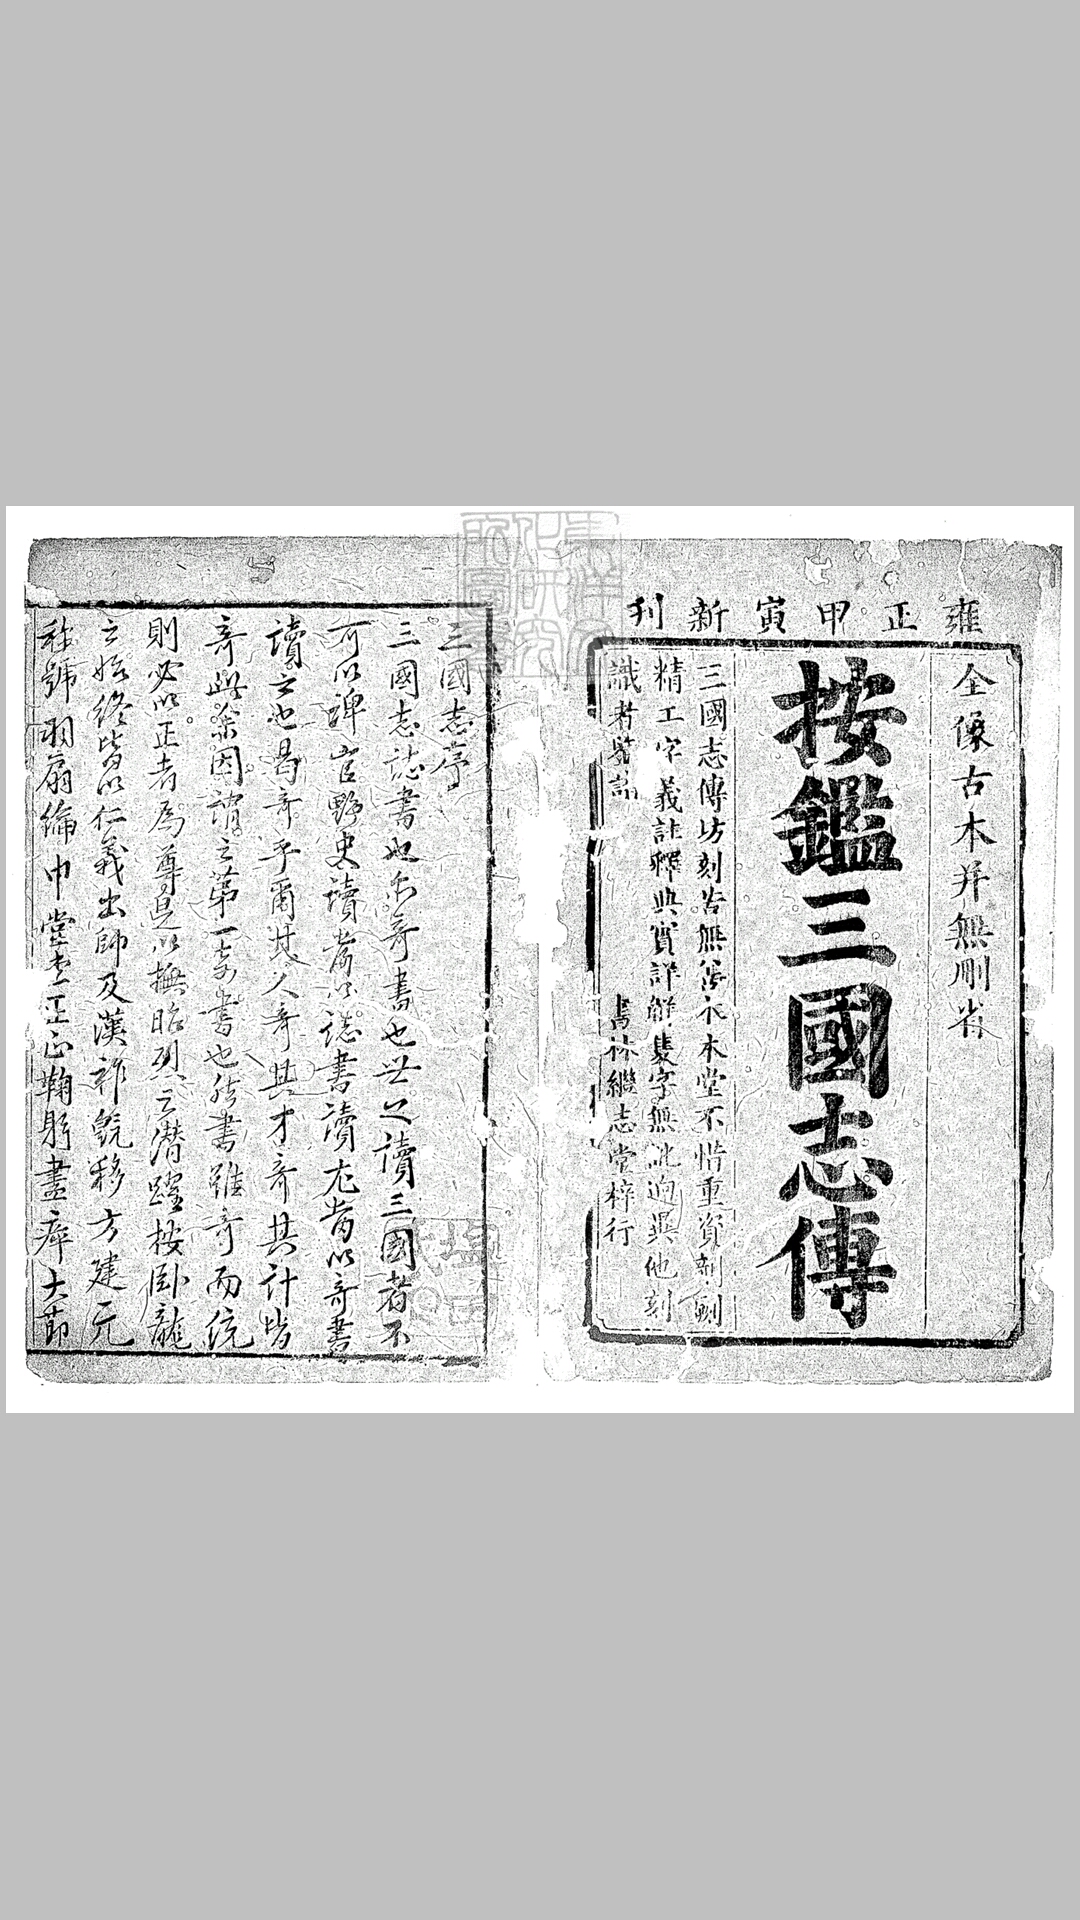 雍正甲寅新刊
全像古本并無刪省
按鑑三國志傳
三國志傳坊刻皆無善本本堂不惜重資剞劂
精工字義註釋典實詳觧隻字無訛逈異他刻
識者鑒諸
書林繼志堂梓行
三國志序
三國志誌書也亦奇書也世之讀三國者不
可以稗官野史讀當以誌書讀尤當以奇書
讀之也曷奇乎爾其人奇其才奇其計皆
奇此余因謂之第一奇書也然書雖奇而統
則必以正者為尊是以撫昭烈之潛躍按臥龍
之始終皆以仁義出師及漢祚既移方建元
稱號羽扇綸巾堂堂正正鞠躬盡瘁大節